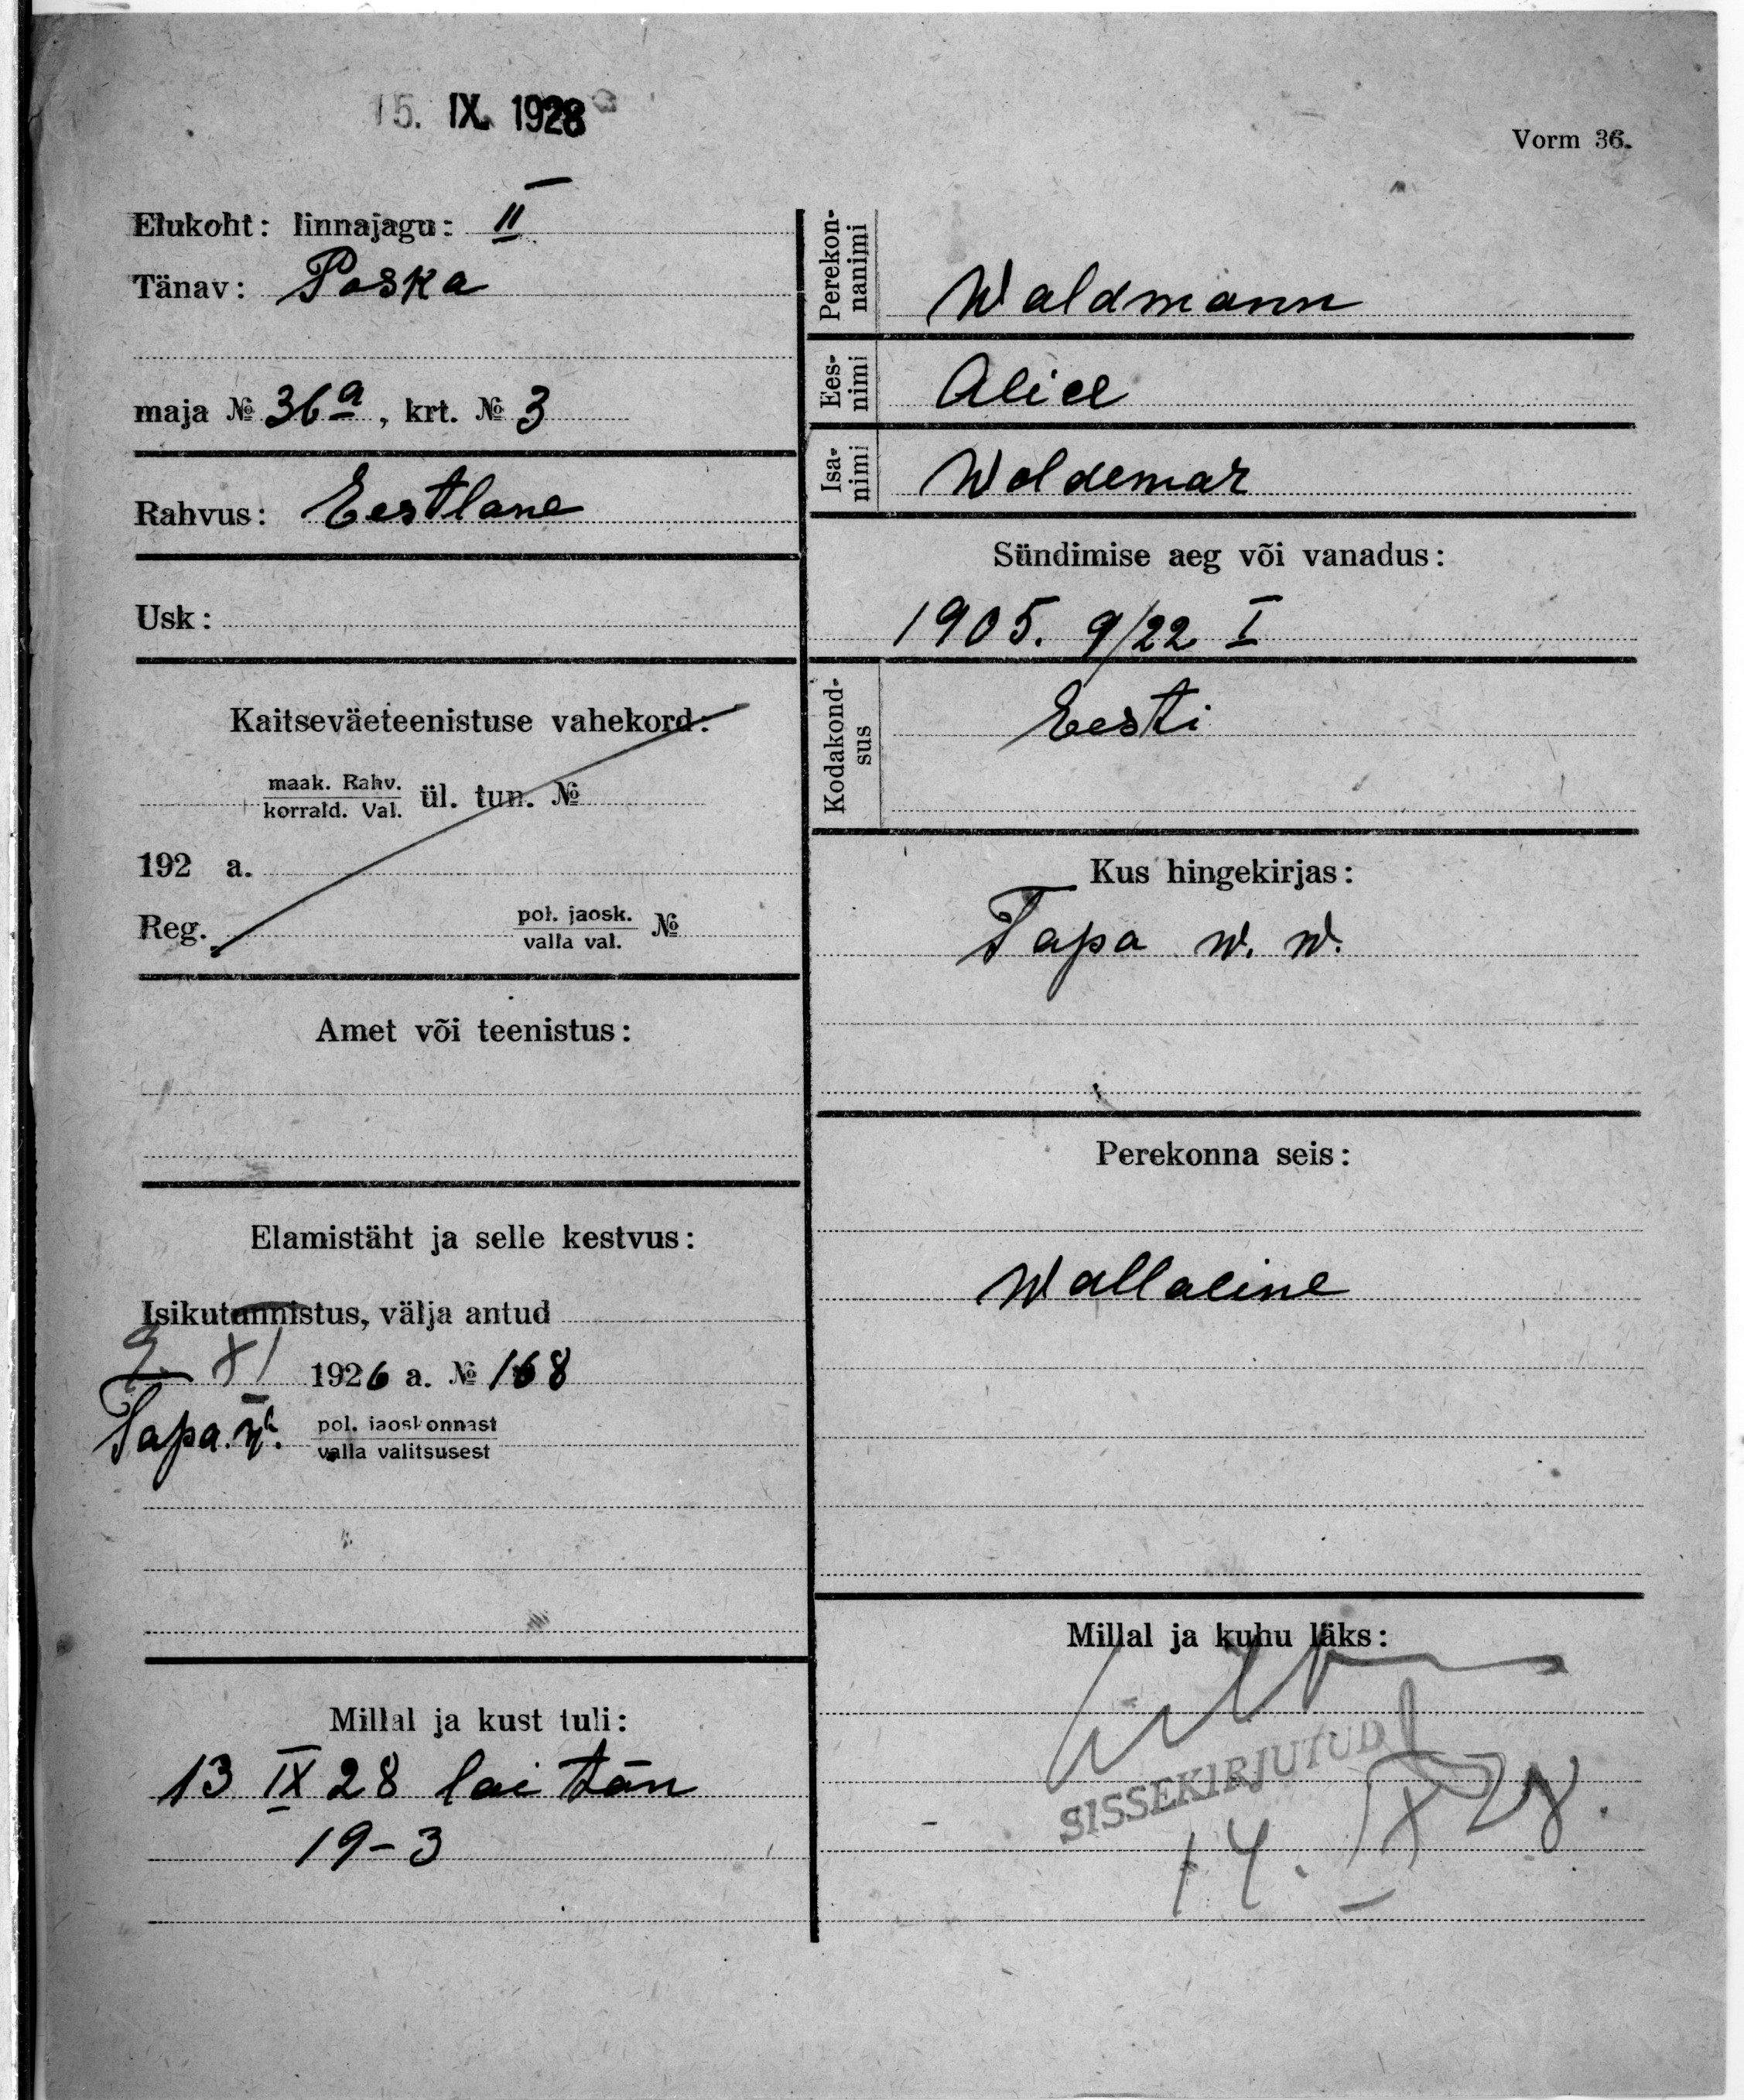 15. IX. 1928
Vorm 36.
Elukoht: linnajagu: II
Tänav: Poska
maja № 36a, krt. № 3
Rahvus: Eestlane
Usk:
Kaitseväeteenistuse vahekord:
maak. Rahv.
korrald. Val. ül. tun. №
192 a.
Reg. pol. jaosk.
valla val. №
Amet või teenistus:
Elamistäht ja selle kestvus:
Isikutunnistus, välja antud
XI 1926 a. № 168
Tapa. pol. jaoskonnast
valla valitsusest
Millal ja kust tuli:
13 IX 28 lai tän
19-3
Perekon-
nanimi
Waldmann
Ees-
nimi
Alice
Isa-
nimi
Woldemar
Sündimise aeg või vanadus:
1905. 9/22 I
Kodakond-
sus
Eesti
Kus hingekirjas:
Tapa w. w.
Perekonna seis:
Wallaline
Millal ja kuhu läks:
SISSEKIRJUTUD
14. IX 28.